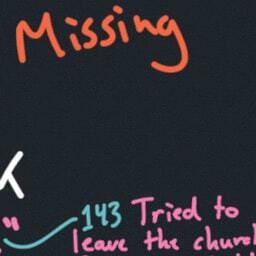 Missing
" 143 Tried to
leave the church